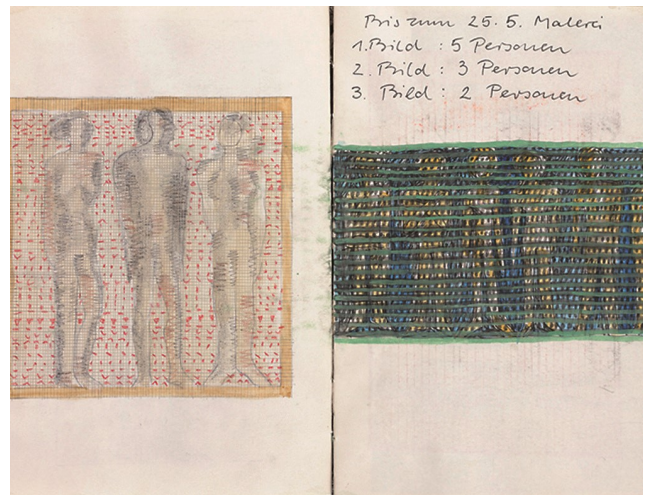 Bis zum 25. 5. Malerei
1. Bild : 5 Personen
2. Bild : 3 Personen
3. Bild : 2 Personen